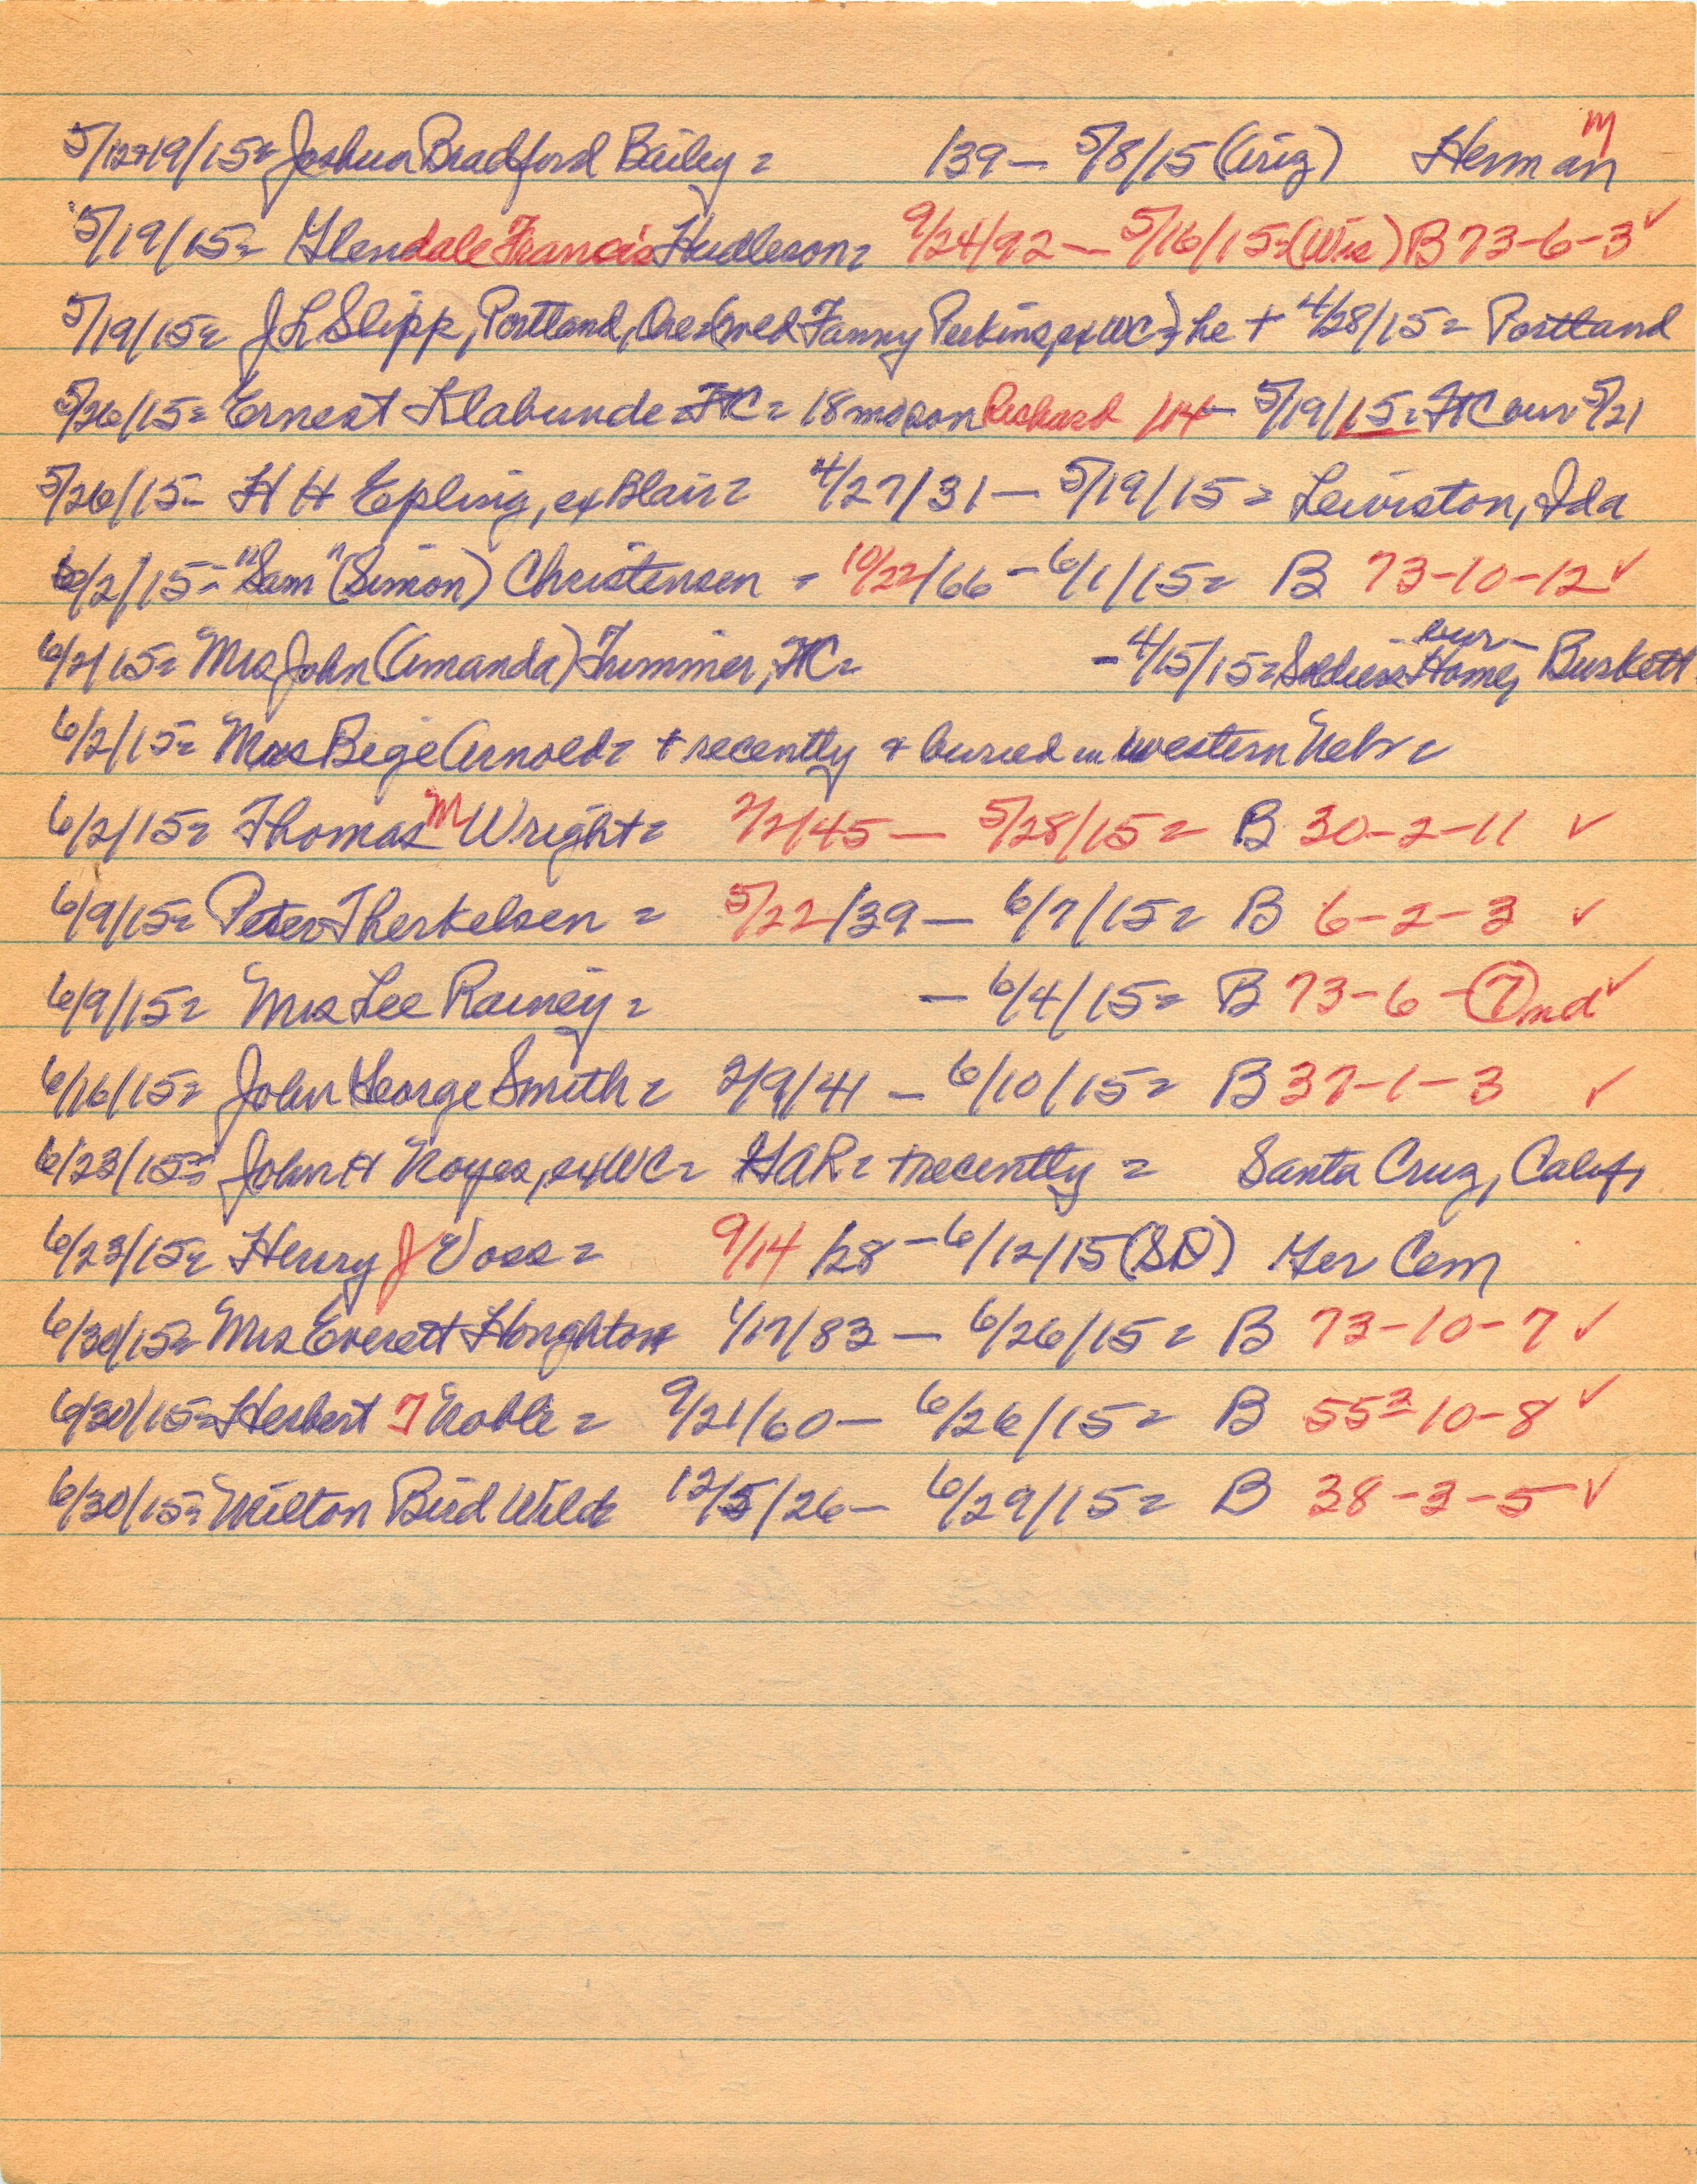 5/12+19/15= Joshua Bradford Bailey = /39 — 5/8/15 (Ariz) Herman m
5/19/15= Glendale Francis Hudleson= 9/24/92 — 5/16/15=(Wis) B 73-6-3 ✓
5/19/15= J L Slipp, Portland, Ore (wed Fanny Perkins, ex WC) he + 4/28/15= Portland
5/26/15= Ernest Klabunde = FtC = 18 mo son Richard /14 — 5/19/15= FtC bur 5/21
5/26/15= H H Epling, ex Blair= 4/27/31 — 5/19/15= Lewiston, Ida
6/2/15= "Sam" (Simon) Christensen = 10/22/66 - 6/1/15= B 73-10-12 ✓
6/2/15= Mrs John (Amanda) Trimmer, FtC= - 4/15/15= Soldiers Home, bur Burkett
6/2/15= Mrs Bige Arnold= + recently & buried in western Nebr=
6/2/15= Thomas M Wright= 2/2/45 — 5/28/15= B 30-2-11 ✓
6/9/15= Peter Therkelsen = 5/22/39 — 6/7/15= B 6-2-3 ✓
6/9/15= Mrs Lee Rainey= — 6/4/15= B 73-6-(7) nd ✓
6/16/15= John George Smith= 2/9/41 — 6/10/15= B 37-1-3 ✓
6/23/15= John H Noyes, ex WC= GAR= + recently = Santa Cruz, Calif,
6/23/15= Henry J Voss= 9/14/28 — 6/12/15 (SD) Ger Cem
6/30/15= Mrs Everett Houghton 1/17/83 — 6/26/15= B 73-10-7 ✓
6/30/15= Herbert T Noble= 9/21/60 — 6/26/15= B 55=10-8 ✓
6/30/15= Milton Bird Wild= 12/5/26 — 6/29/15= B 38-3-5 ✓